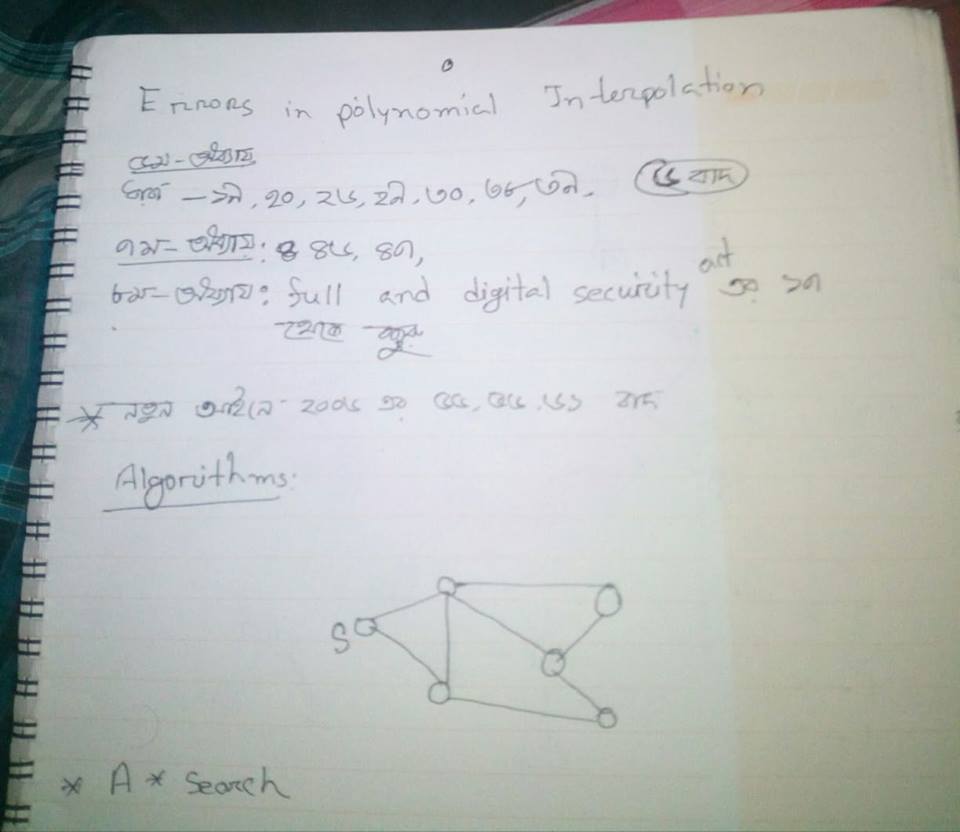 Errors in polynomial Interpolation
৫ম-অধ্যায়
ধারা - ১৯, ২০, ২৬, ২৯, ৩০, ৩৮, ৩৯. ৫ বাদ
৭ম-অধ্যায়: ৪৬, ৪৭,
৮ম-অধ্যায়: full and digital security act এর ১৭
থেকে শুরু
* নতুন আইনে ২০০৬ এর ৫৪, ৫৬, ৬১ বাদ
Algorithms:
S
* A* Search